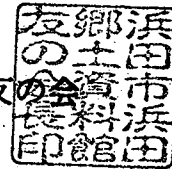 浜田市浜田
郷土資料館
友の会長印
友の会